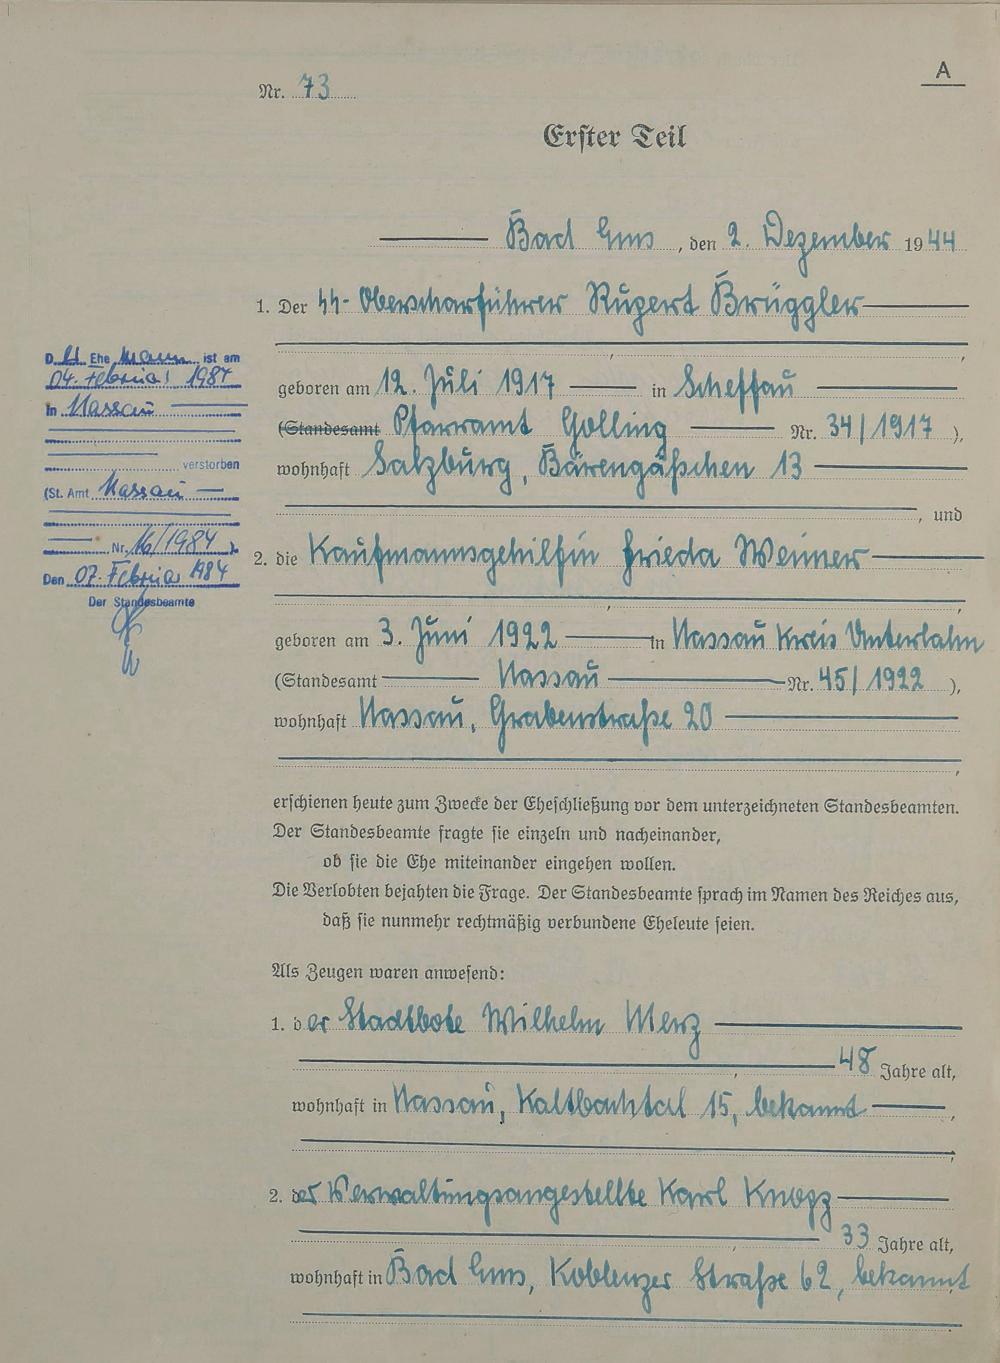 A
Nr. 73
Erster Teil
Bad Ems, den 2. Dezember 1944
1. Der SS-Oberscharführer Rupert Brüggler
geboren am 12. Juli 1917 in Scheffau
(Standesamt Pfarramt Golling Nr. 34/1917),
wohnhaft Salzburg, Bärengäßchen 13
, und
2. die Kaufmannsgehilfin Frieda Weimer
geboren am 3. Juni 1922 in Nassau Kreis Unterlahn
(Standesamt Nassau Nr. 45/1922),
wohnhaft Nassau, Grabenstraße 20
erschienen heute zum Zwecke der Eheschließung vor dem unterzeichneten Standesbeamten.
Der Standesbeamte fragte sie einzeln und nacheinander,
ob sie die Ehe miteinander eingehen wollen.
Die Verlobten bejahten die Frage. Der Standesbeamte sprach im Namen des Reiches aus,
daß sie nunmehr rechtmäßig verbundene Eheleute seien.
Als Zeugen waren anwesend:
1. der Stadtbote Wilhelm Merz
48 Jahre alt,
wohnhaft in Nassau, Kaltbachtal 15, bekannt,
2. der Verwaltungsangestellte Karl Knopp
33 Jahre alt,
wohnhaft in Bad Ems, Koblenzer Straße 62, bekannt
D. Ehemann ist am
04. Februar 1984
in Nassau
verstorben
(St. Amt Nassau
Nr. 16/1984)
Den 07. Februar 1984
Der Standesbeamte